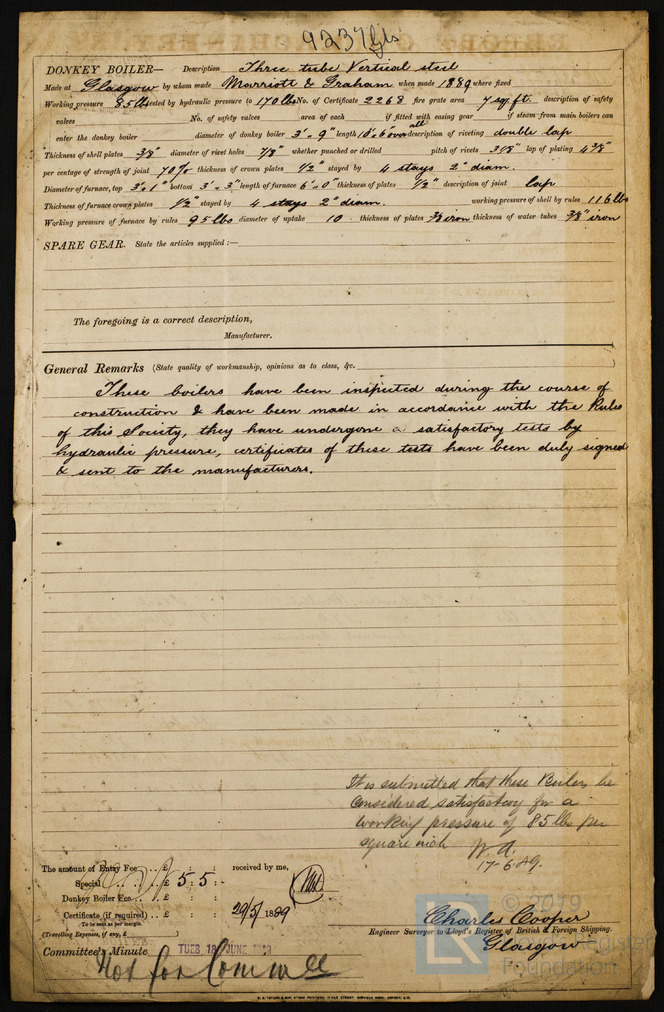 9237 Gls
DONKEY BOILER— Description Three tube Vertical steel
Made at Glasgow by whom made Marriott & Graham when made 1889 where fixed
Working pressure 85 lbs tested by hydraulic pressure to 170 lbs No. of Certificate 2268 fire grate area 7 sq ft. description of safety
valves No. of safety valves area of each if fitted with easing gear if steam from main boilers can
enter the donkey boiler diameter of donkey boiler 3'. 9" length 10'.6 over all description of riveting double lap
Thickness of shell plates 3/8" diameter of rivet holes 7/8" whether punched or drilled pitch of rivets 3 1/8" lap of plating 4 3/8"
per centage of strength of joint 70% thickness of crown plates 1/2" stayed by 4 stays 2" diam.
Diameter of furnace, top 3'. 1" bottom 3'. 3" length of furnace 6'. 0" thickness of plates 1/2" description of joint lap
Thickness of furnace crown plates 1/2" stayed by 4 stays 2" diam. working pressure of shell by rules 116 lbs
Working pressure of furnace by rules 95 lbs diameter of uptake 10 thickness of plates 3/8 iron thickness of water tubes 3/8" iron
SPARE GEAR. State the articles supplied :—
The foregoing is a correct description,
Manufacturer.
General Remarks (State quality of workmanship, opinions as to class, &c.
These boilers have been inspected during the course of
construction & have been made in accordance with the Rules
of this Society, they have undergone a satisfactory tests by
hydraulic pressure, certificates of these tests have been duly signed
& sent to the manufacturers.
It is submitted that these Boilers be
considered satisfactory for a
working pressure of 85 lbs per
square inch W.A.
17-6-89.
The amount of Entry Fee . . £ : : received by me,
Special . . . . £ 5 : 5 :
Donkey Boiler Fee . . . £ : :
Certificate (if required) . . £ : : 29/5/1889
To be sent as per margin.
(Travelling Expenses, if any, £ )
Charles Cooper
Engineer Surveyor to Lloyd's Register of British & Foreign Shipping.
Glasgow
Committee's Minute TUES 18 JUNE 1889
Not for Comm ee
© 2019
Register
Foundation
LR